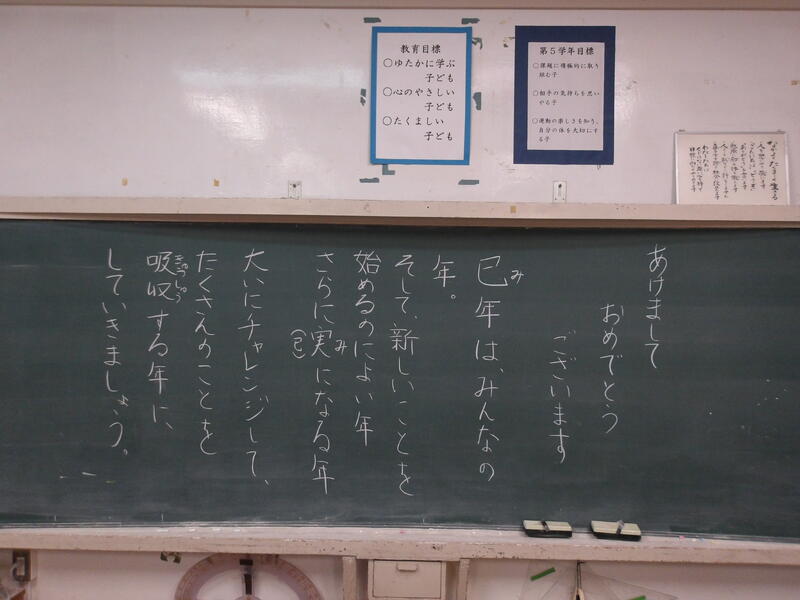 教育目標
○ゆたかに学ぶ
子ども
○心のやさしい
子ども
○たくましい
子ども
第5学年目標
○課題に積極的に取り
組む子
○相手の気持ちを思い
やる子
○運動の楽しさを知り、
自分の体を大切にす
る子
あけまして
おめでとう
ございます
巳年は、みんなの
み
年。
そして、新しいことを
始めるのによい年
さらに実になる年
み
(巳)
大いにチャレンジして、
たくさんのことを
吸収する年に、
きゅうしゅう
していきましょう。